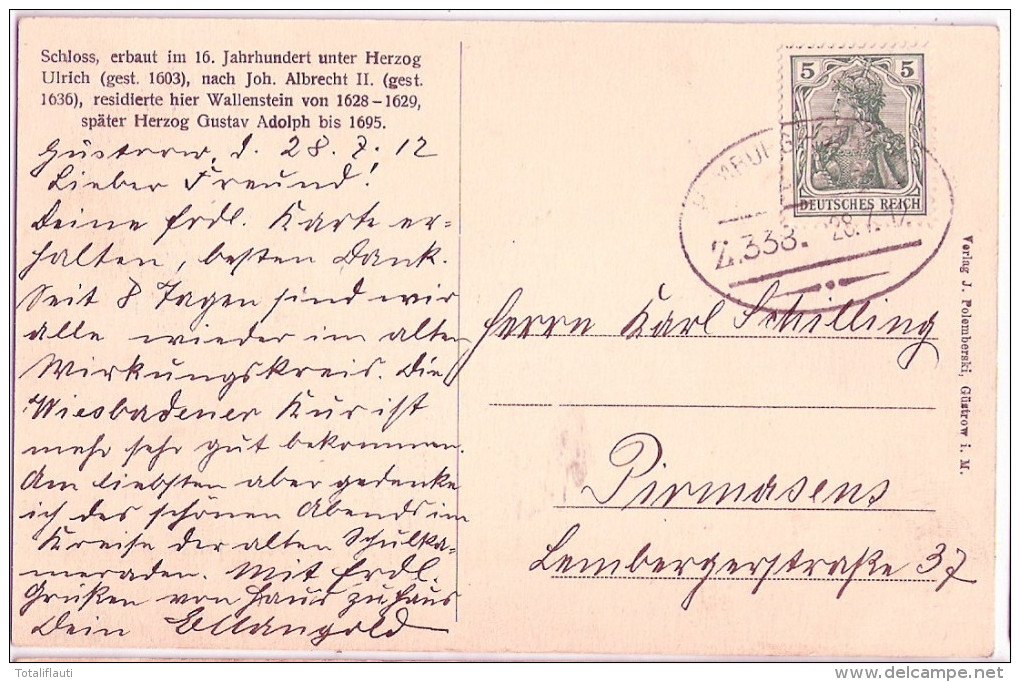 Schloss, erbaut im 16. Jahrhundert unter Herzog
Ulrich (gest. 1603), nach Joh. Albrecht II. (gest.
1636), residierte hier Wallenstein von 1628–1629,
später Herzog Gustav Adolph bis 1695.
Güstrow, d. 28. 7. 12
Lieber Freund!
Deine frdl. Karte er-
halten, besten Dank.
Seit 8 Tagen sind wir
alle wieder im alten
Wirkungskreis. Die
Wiesbadener Kur ist
mehr sehr gut bekommen.
Am liebsten aber gedenke
ich des schönen Abends im
Kreise der alten Schulka-
meraden. Mit frdl.
Grüßen von Haus zu Haus
Dein
5 5
DEUTSCHES REICH
Z.338. 28.7.12
Herrn Karl Schilling
Pirmasens
Lembergerstraße 37
Verlag J. Polemberski, Güstrow i. M.
Totaliflauti
www.delcampe.net